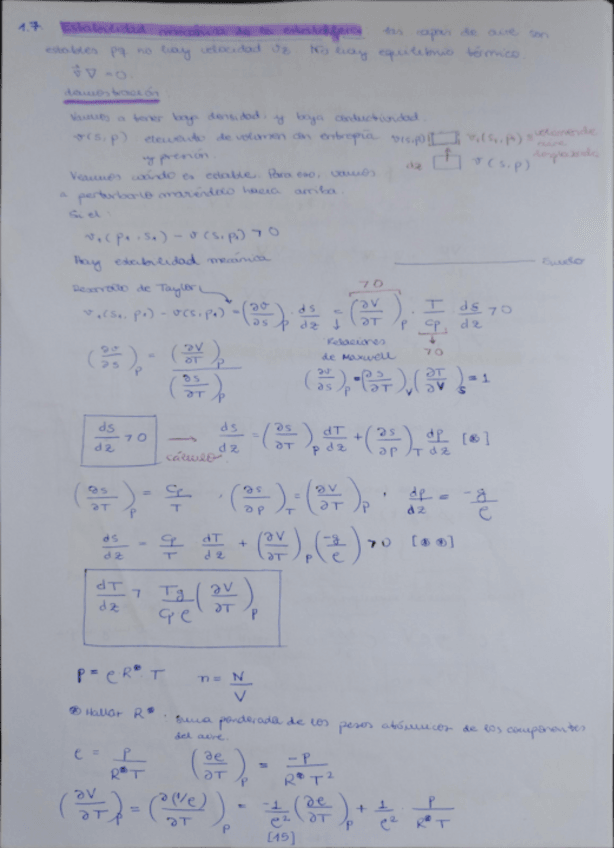 1.7 Estabilidad mecánica de la estratósfera las capas de aire son
estables pq no hay velocidad vz. No hay equilibrio térmico.
∇ = 0.
Demostración
Vamos a tener baja densidad, y baja conductividad.
v(s,p) elemento de volumen con entropía v(s,p) v*(s*,p*) = volumen de aire desplazado
y presión dz v(s,p)
Veamos cuándo es estable. Para eso, vamos
a perturbarlo moviéndolo hacia arriba.
Si el
v*(p*,s*) - v(s,p) > 0
Hay estabilidad mecánica
Desarrollo de Taylor
v*(s*,p*) - v(s,p*) = (∂v/∂s)p · ds/dz = (∂V/∂T)p · T/Cp ds/dz > 0
>0
Relaciones de Maxwell
>0
(∂v/∂s)p = (∂V/∂T)p / (∂s/∂T)p (∂v/∂s)p · (∂s/∂T)v (∂T/∂V)s = 1
ds/dz > 0 → cálculo ds/dz = (∂s/∂T)p dT/dz + (∂s/∂p)T dp/dz [*]
(∂s/∂T)p = Cp/T , (∂s/∂p)T = (∂V/∂T)p , dp/dz = -g/ρ
ds/dz = Cp/T dT/dz + (∂V/∂T)p (-g/ρ) > 0 [**]
dT/dz > Tg/Cpρ (∂V/∂T)p
p = ρR*T n = N/V
Hallar R*. suma ponderada de los pesos atómicos de los componentes
del aire.
ρ = p/R*T (∂ρ/∂T)p = -p/R*T²
(∂V/∂T)p = (∂(1/ρ)/∂T)p = -1/ρ² (∂ρ/∂T)p + 1/ρ² · p/R*T
[19]